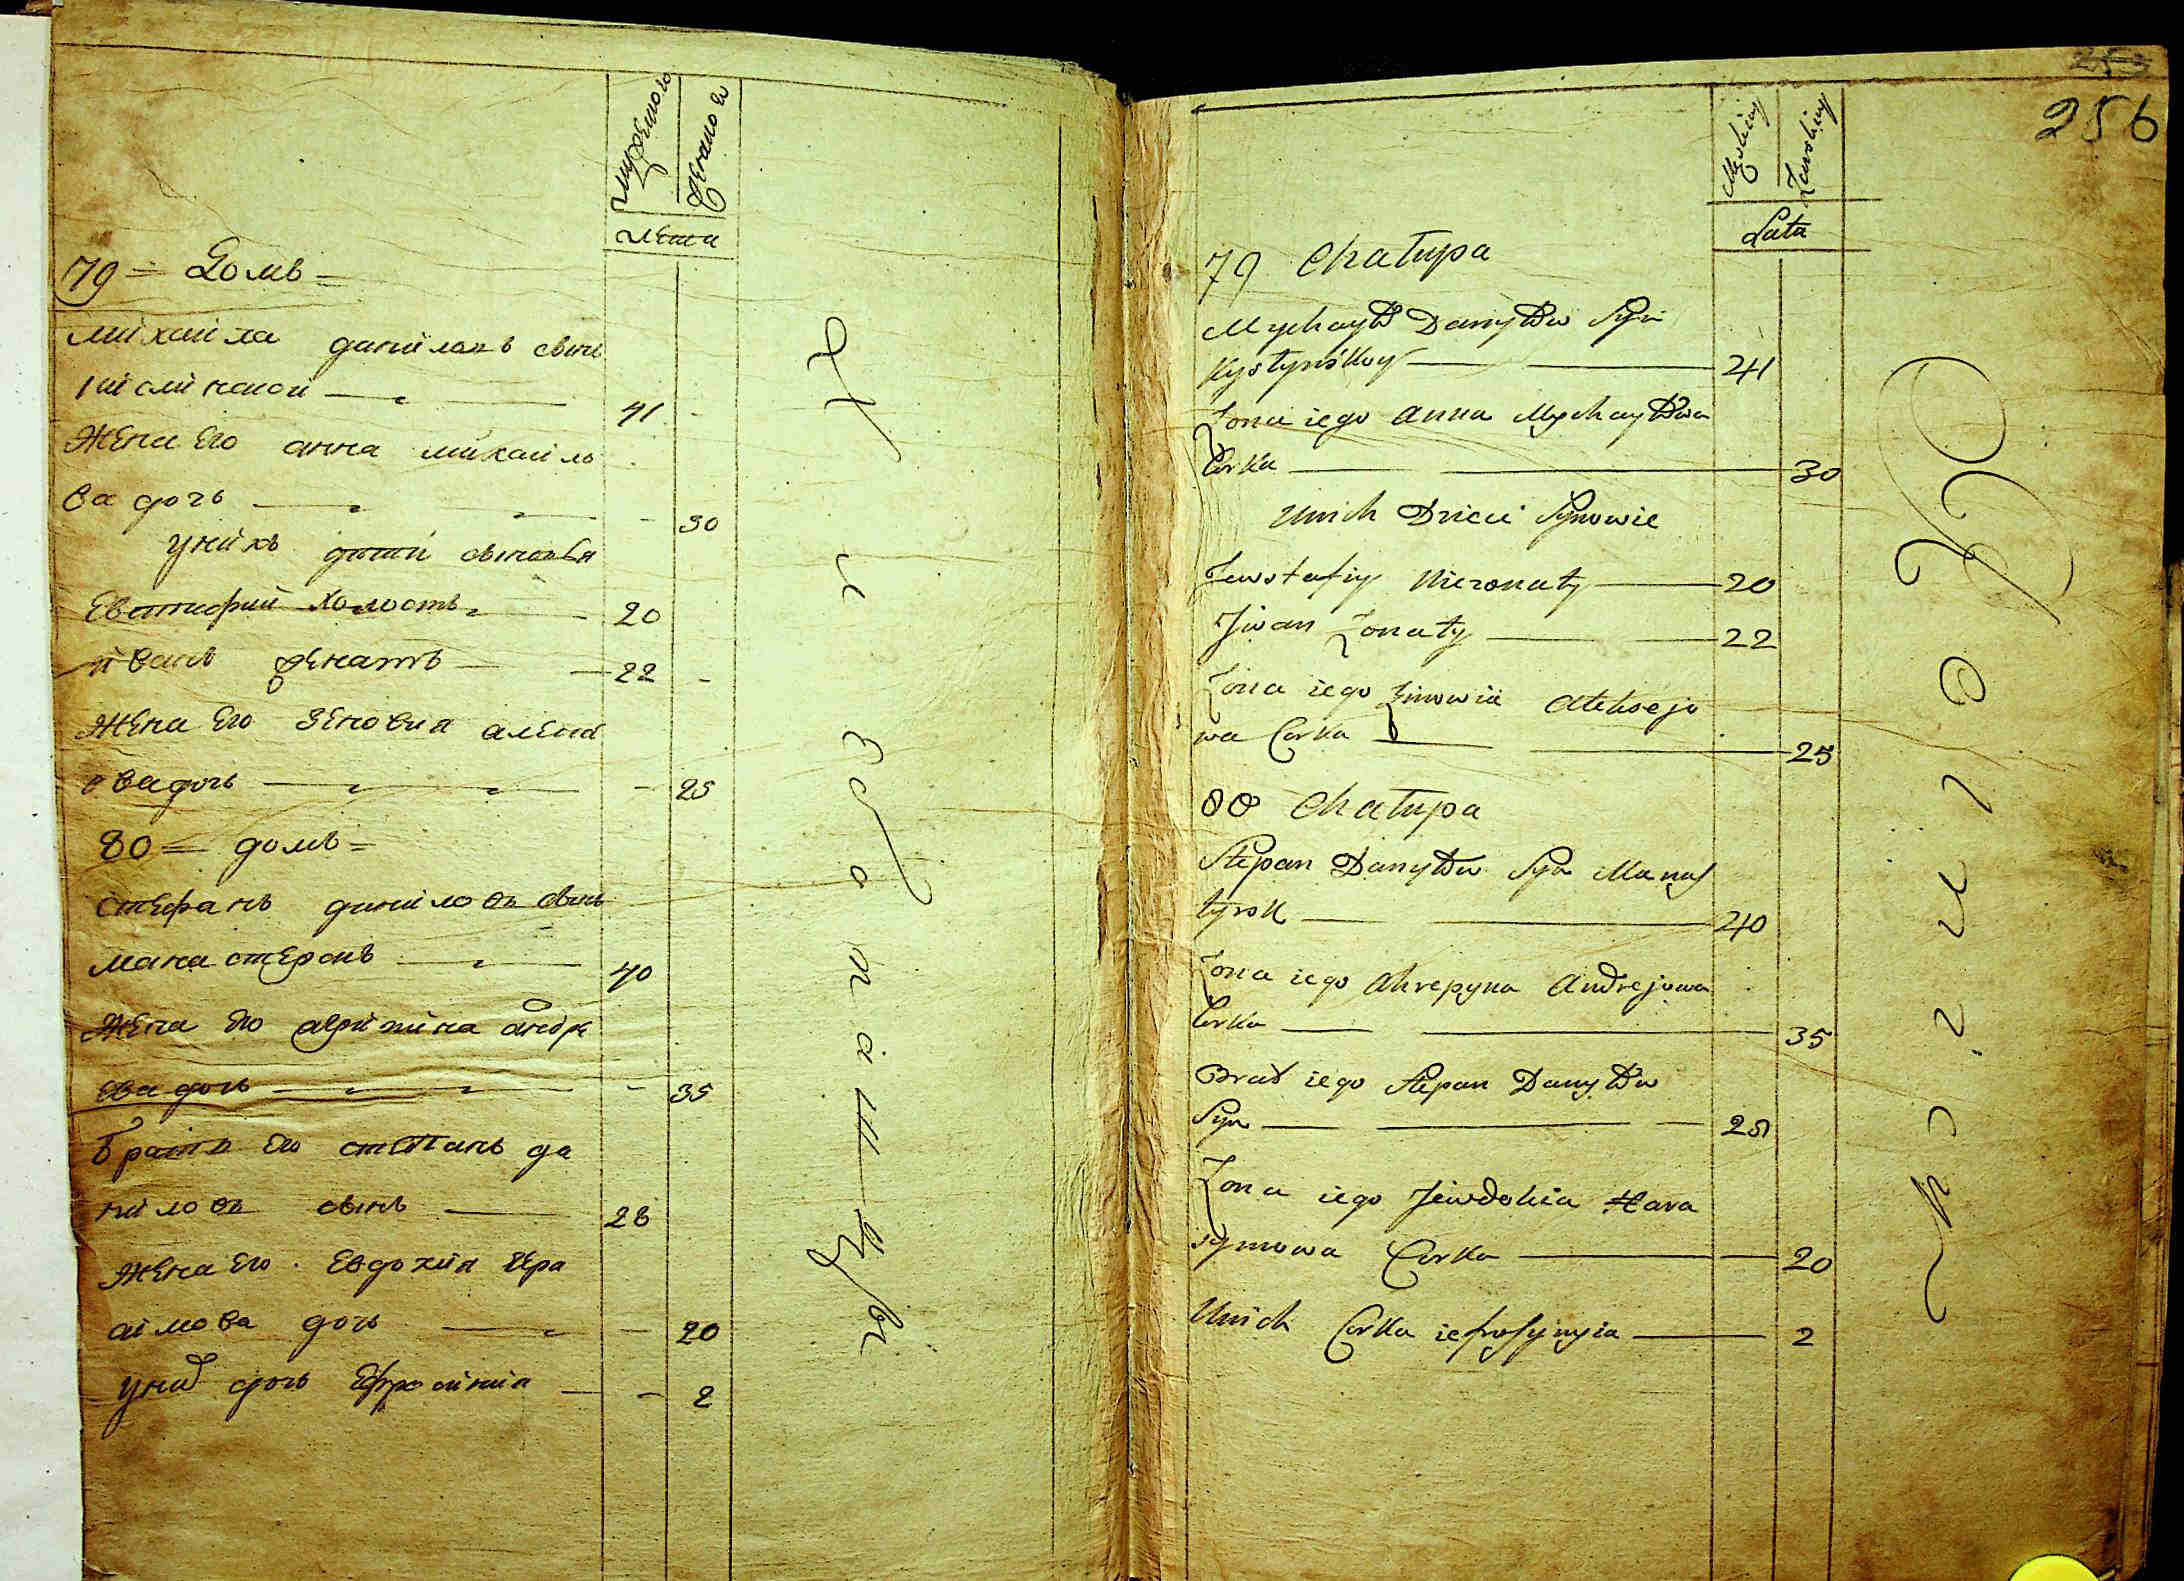 мужеского
женского
лета
79 = Домъ =
михайла даниловъ сынъ
кислинской 41 -
Жена Его анна михайло
ва дочь - 30
у нихъ дети сыновья
Евстафий Холостъ 20
иванъ женатъ 22 -
жена Его Зеновия алексе
ева дочь - 25
80 = домъ =
Стефанъ даниловъ сынъ
манастерскъ 40
жена Его агрипина андре
ева дочь - 35
братъ Его степанъ да
ниловъ сынъ 28
жена Его Евдокия Гера
симова дочь - 20
у них дочь Ефросиния - 2
256
Męskiey
Zenskiey
Lata
79 Chałupa
Mychayło Danyłow Syn
Kystynskoy 41
Zona iego Anna Mychayłowa
Corka 30
Unich Dzieci Synowie
Jewstafiy Niezonaty 20
Jiwan Zonaty 22
Zona iego Zinowia Aleksejo
wa Corka 25
80 Chałupa
Stepan Danyłow Syn Manas
tyrsk 40
Zona iego Ahrepyna Andrejowa
Corka 35
Brat iego Stepan Danyłow
Syn 28
Zona iego Jewdokia Hara
symowa Corka 20
Unich Corka iefrosynyia 2